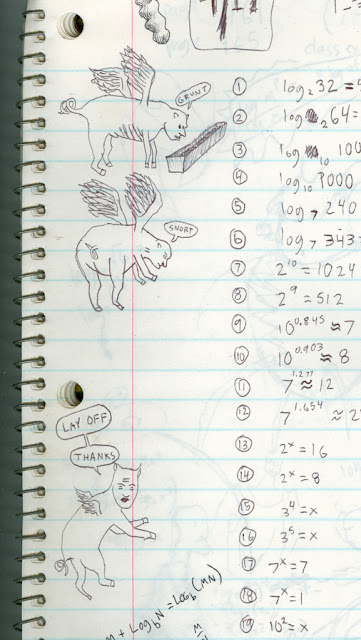 GRUNT
SNORT
LAY OFF
THANKS
① log₂32 =
② log₂64 =
③ log₁₀100
④ log₁₀1000
⑤ log₇240
⑥ log₇343
⑦ 2¹⁰ = 1024
⑧ 2⁹ = 512
⑨ 10^0.845 ≈ 7
⑩ 10^0.903 ≈ 8
⑪ 7^1.277 ≈ 12
⑫ 7^1.654 ≈ 2
⑬ 2ˣ = 16
⑭ 2ˣ = 8
⑮ 3⁴ = x
⑯ 3⁵ = x
⑰ 7ˣ = 7
⑱ 7ˣ = 1
⑲ 10² = x
+ Log_b N = Log_b (MN)